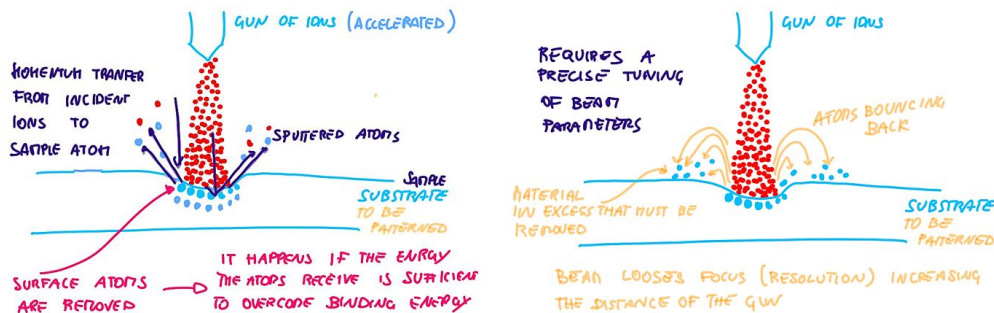 GUN OF IONS (ACCELERATED)
MOMENTUM TRANFER
FROM INCIDENT
IONS TO
SAMPLE ATOM
SPUTTERED ATOMS
SAMPLE
SUBSTRATE
TO BE
PATTERNED
SURFACE ATOMS
ARE REMOVED
IT HAPPENS IF THE ENERGY
THE ATOMS RECEIVE IS SUFFICIENT
TO OVERCOME BINDING ENERGY
GUN OF IONS
REQUIRES A
PRECISE TUNING
OF BEAM
PARAMETERS
ATOMS BOUNCING
BACK
MATERIAL
IN EXCESS THAT MUST BE
REMOVED
SUBSTRATE
TO BE
PATTERNED
BEAM LOOSES FOCUS (RESOLUTION) INCREASING
THE DISTANCE OF THE GUN